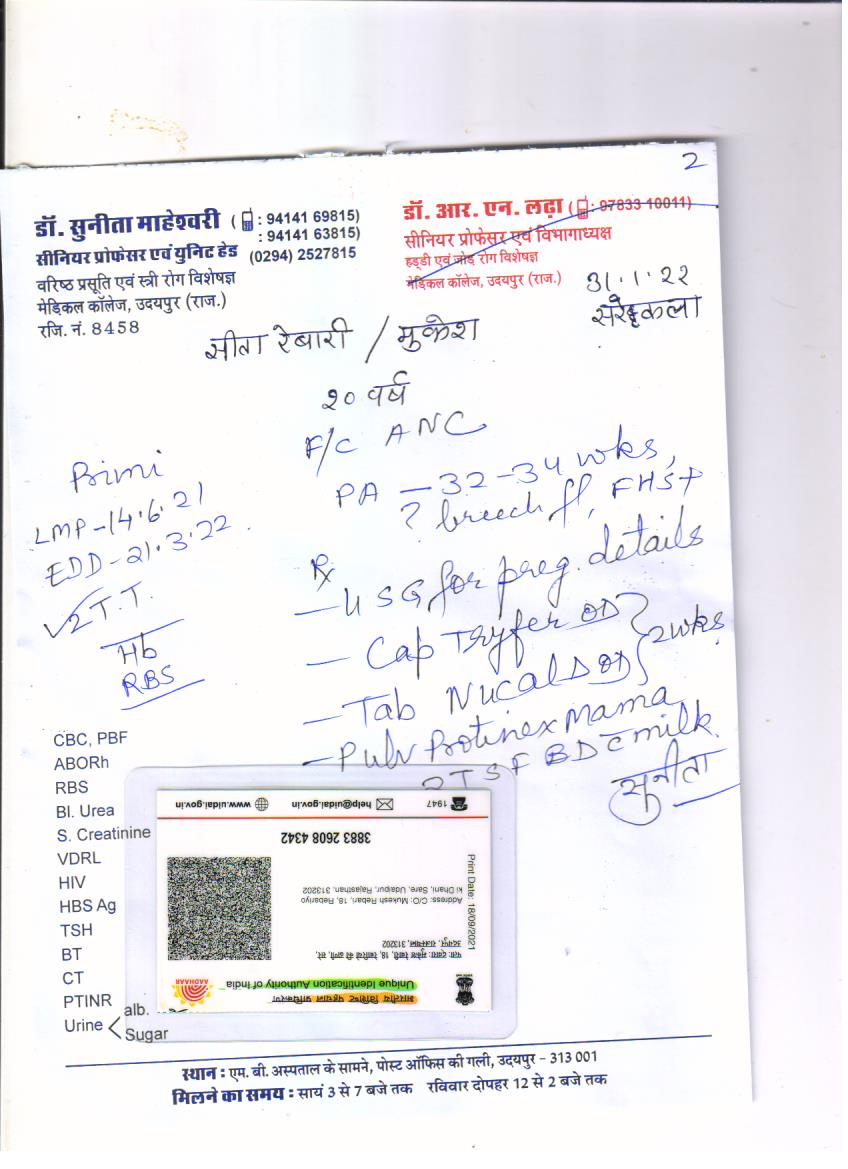 2
डॉ. सुनीता माहेश्वरी ( : 94141 69815)
: 94141 63815)
सीनियर प्रोफेसर एवं युनिट हेड (0294) 2527815
वरिष्ठ प्रसूति एवं स्त्री रोग विशेषज्ञ
मेडिकल कॉलेज, उदयपुर (राज.)
रजि. नं. 8458
डॉ. आर. एन. लढ़ा ( : 97833 10011)
सीनियर प्रोफेसर एवं विभागाध्यक्ष
हड्डी एवं जोड़ रोग विशेषज्ञ
मेडिकल कॉलेज, उदयपुर (राज.)
31.1.22
सीता रेबारी / मुकेश
२० वर्ष
F/C ANC
Primi
LMP-14.6.21
EDD-21.3.22.
✓2T.T.
Hb
RBS
PA - 32-34 wks,
? breech ff, FHS+
Rx
- USG for preg. details
- Cap Tryfer OD } 2wks
- Tab Nucal D OD
- Pulv Protinex Mama
2TSF BD c milk.
सुनीता
CBC, PBF
ABORh
RBS
Bl. Urea
S. Creatinine
VDRL
HIV
HBS Ag
TSH
BT
CT
PTINR
Urine < alb.
Sugar
भारतीय विशिष्ट पहचान प्राधिकरण
Unique Identification Authority of India
AADHAAR
उदयपुर, राजस्थान, 313202
Address: C/O: Mukesh Rebari, 18, Rebariyo
ki Dhani, Sare, Udaipur, Rajasthan, 313202
Print Date: 18/09/2021
3883 2608 4342
1947 help@uidai.gov.in www.uidai.gov.in
स्थान : एम. बी. अस्पताल के सामने, पोस्ट ऑफिस की गली, उदयपुर - 313 001
मिलने का समय : सायं 3 से 7 बजे तक रविवार दोपहर 12 से 2 बजे तक